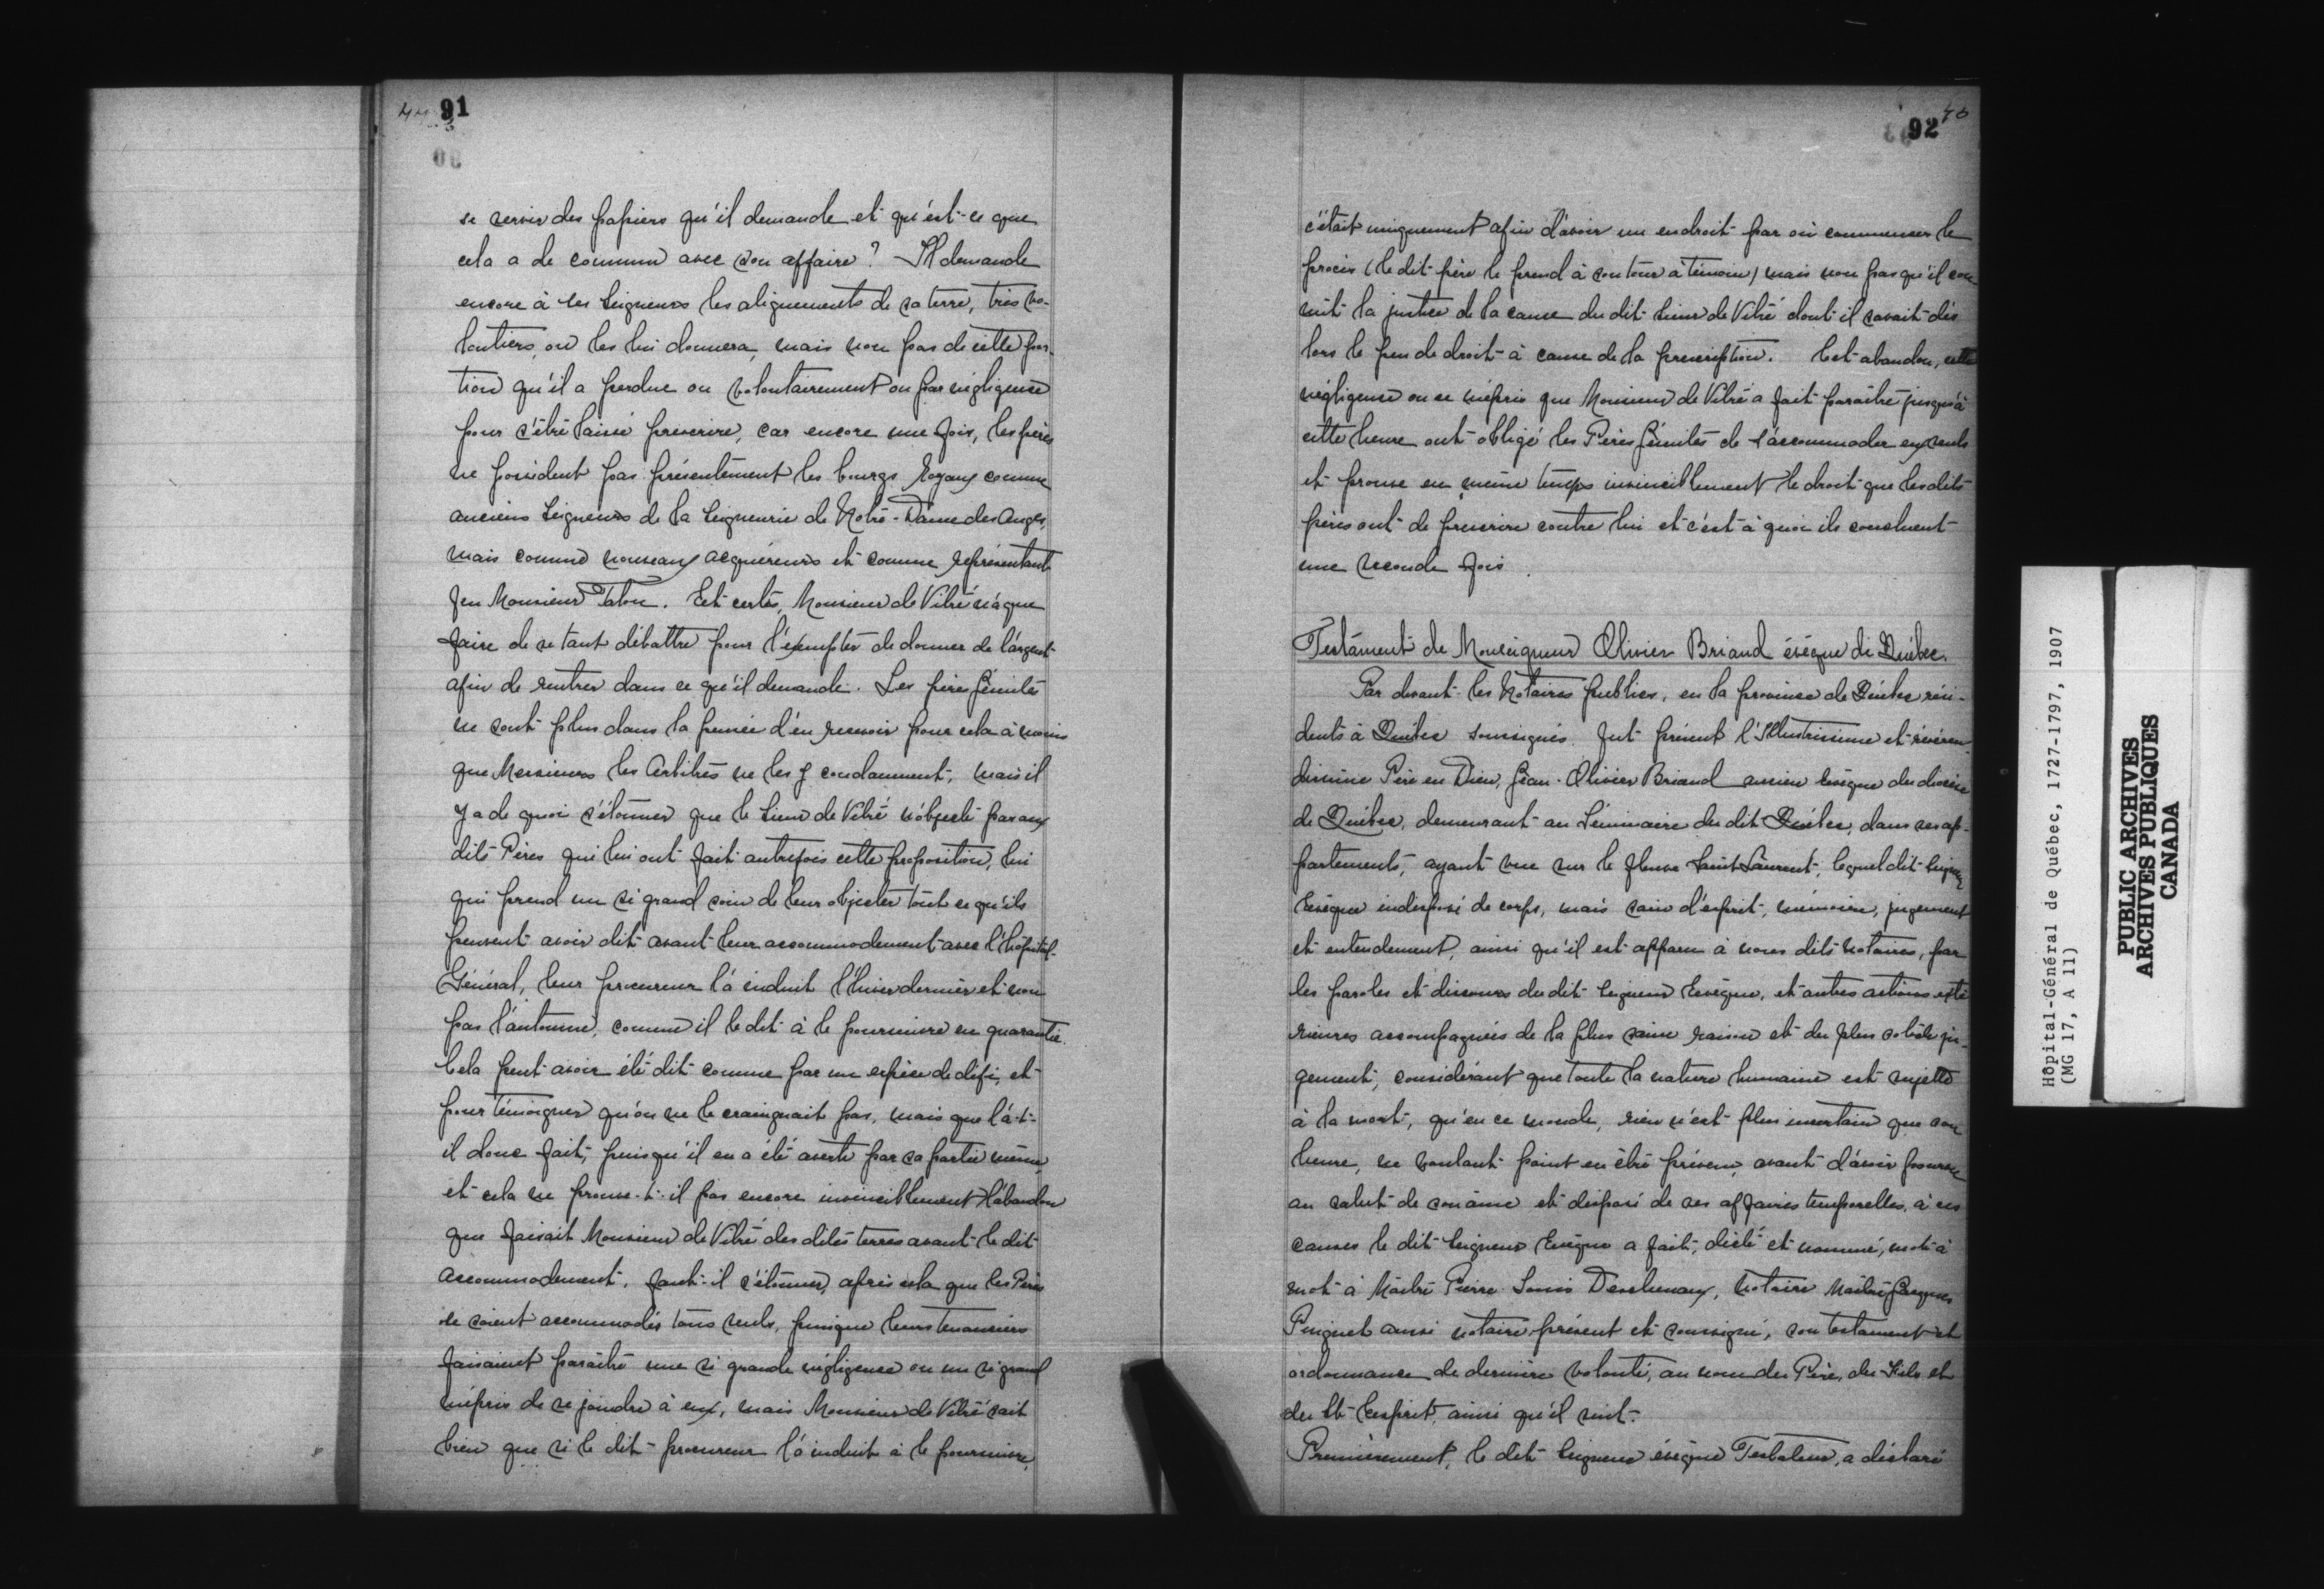 91
se servir des papiers qu'il demande et qu'est-ce que
cela a de commun avec son affaire? Il demande
encore à ses Seigneurs les alignements de sa terre, très vo-
lontiers, on les lui donnera, mais non pas de cette por-
tion qu'il a perdue ou volontairement ou par négligence
pour s'être laissé prescrire, car encore une fois, les pères
ne possèdent pas présentement les bourgs Royaux comme
anciens Seigneurs de la Seigneurie de Notre-Dame des Anges,
mais comme nouveaux acquéreurs et comme représentant
feu Monsieur Talon. Et certes, Monsieur de Vitré n'a que
faire de se tant débattre pour s'exempter de donner de l'argent
afin de rentrer dans ce qu'il demande. Les pères Jésuites
ne sont plus dans la pensée d'en recevoir pour cela à moins
que Messieurs les Arbitres ne les y condamnent, mais il
y a de quoi s'étonner que le Sieur de Vitré n'objecte pas aux
dits Pères qui lui ont fait autrefois cette proposition, lui
qui prend un si grand soin de leur objecter tout ce qu'ils
peuvent avoir dit avant leur accommodement avec l'hôpital-
Général, leur procureur l'a induit l'hiver dernier et non
pas l'automne, comme il le dit à le poursuivre en garantie.
Cela peut avoir été dit comme par une espèce de défi, et
pour témoigner qu'on ne le craignait pas, mais que l'a-t-
il donc fait, puisqu'il en a été averti par sa partie même
et cela ne prouve-t-il pas encore invinciblement l'abandon
que faisait Monsieur de Vitré des dites terres avant le dit
accommodement, faut-il s'étonner, après cela que les Pères
se soient accommodés tous seuls, puisque leurs tenanciers
faisaient paraître une si grande négligence ou un si grand
mépris de se joindre à eux, mais Monsieur de Vitré sait
bien que si le dit procureur l'a induit à le poursuivre,
92
c'était uniquement afin d'avoir un endroit par où commencer le
procès (le dit père le prend à son tour à témoin) mais non pas qu'il con-
nût la justice de la cause du dit Sieur de Vitré dont il savait dès
lors le peu de droit à cause de la prescription. Cet abandon, cette
négligence ou ce mépris que Monsieur de Vitré a fait paraître jusqu'à
cette heure ont obligé les Pères Jésuites de s'accommoder eux seuls
et prouve en même temps invinciblement le droit que les dits
pères ont de prescrire contre lui et c'est à quoi ils concluent
une seconde fois.
Testament de Monseigneur Olivier Briand évêque de Québec.
Par devant les Notaires publics, en la province de Québec rési-
dents à Québec soussignés. fut présent l'Illustrissime et révéren-
dissime Père en Dieu, Jean-Olivier Briand ancien Evêque du diocèse
de Québec, demeurant au Séminaire du dit Québec, dans ses ap-
partements, ayant vue sur le fleuve Saint Laurent, lequel dit Seigneur
Evêque indisposé de corps, mais sain d'esprit, mémoire, jugement
et entendement, ainsi qu'il est apparu à nous dits notaires, par
les paroles et discours du dit Seigneur Evêque, et autres actions exté
rieures accompagnées de la plus saine raison et du plus solide ju-
gement, considérant que toute la nature humaine est sujette
à la mort, qu'en ce monde, rien n'est plus incertain que son
heure, ne voulant point en être prévenu, avant d'avoir pourvu
au salut de son âme et disposé de ses affaires temporelles, à ces
causes le dit Seigneur Evêque a fait, dicté et nommé, mot à
mot à Maître Pierre Louis Deschenaux, notaire Maître Jacques
Pinguet aussi notaire présent et soussigné, son testament et
ordonnance de dernière volonté, au nom du Père, du Fils et
du St-Esprit, ainsi qu'il suit.
Premièrement, le dit Seigneur évêque Testateur, a déclaré
Hôpital-Général de Québec, 1727-1797, 1907
(MG 17, A 11)
PUBLIC ARCHIVES
ARCHIVES PUBLIQUES
CANADA